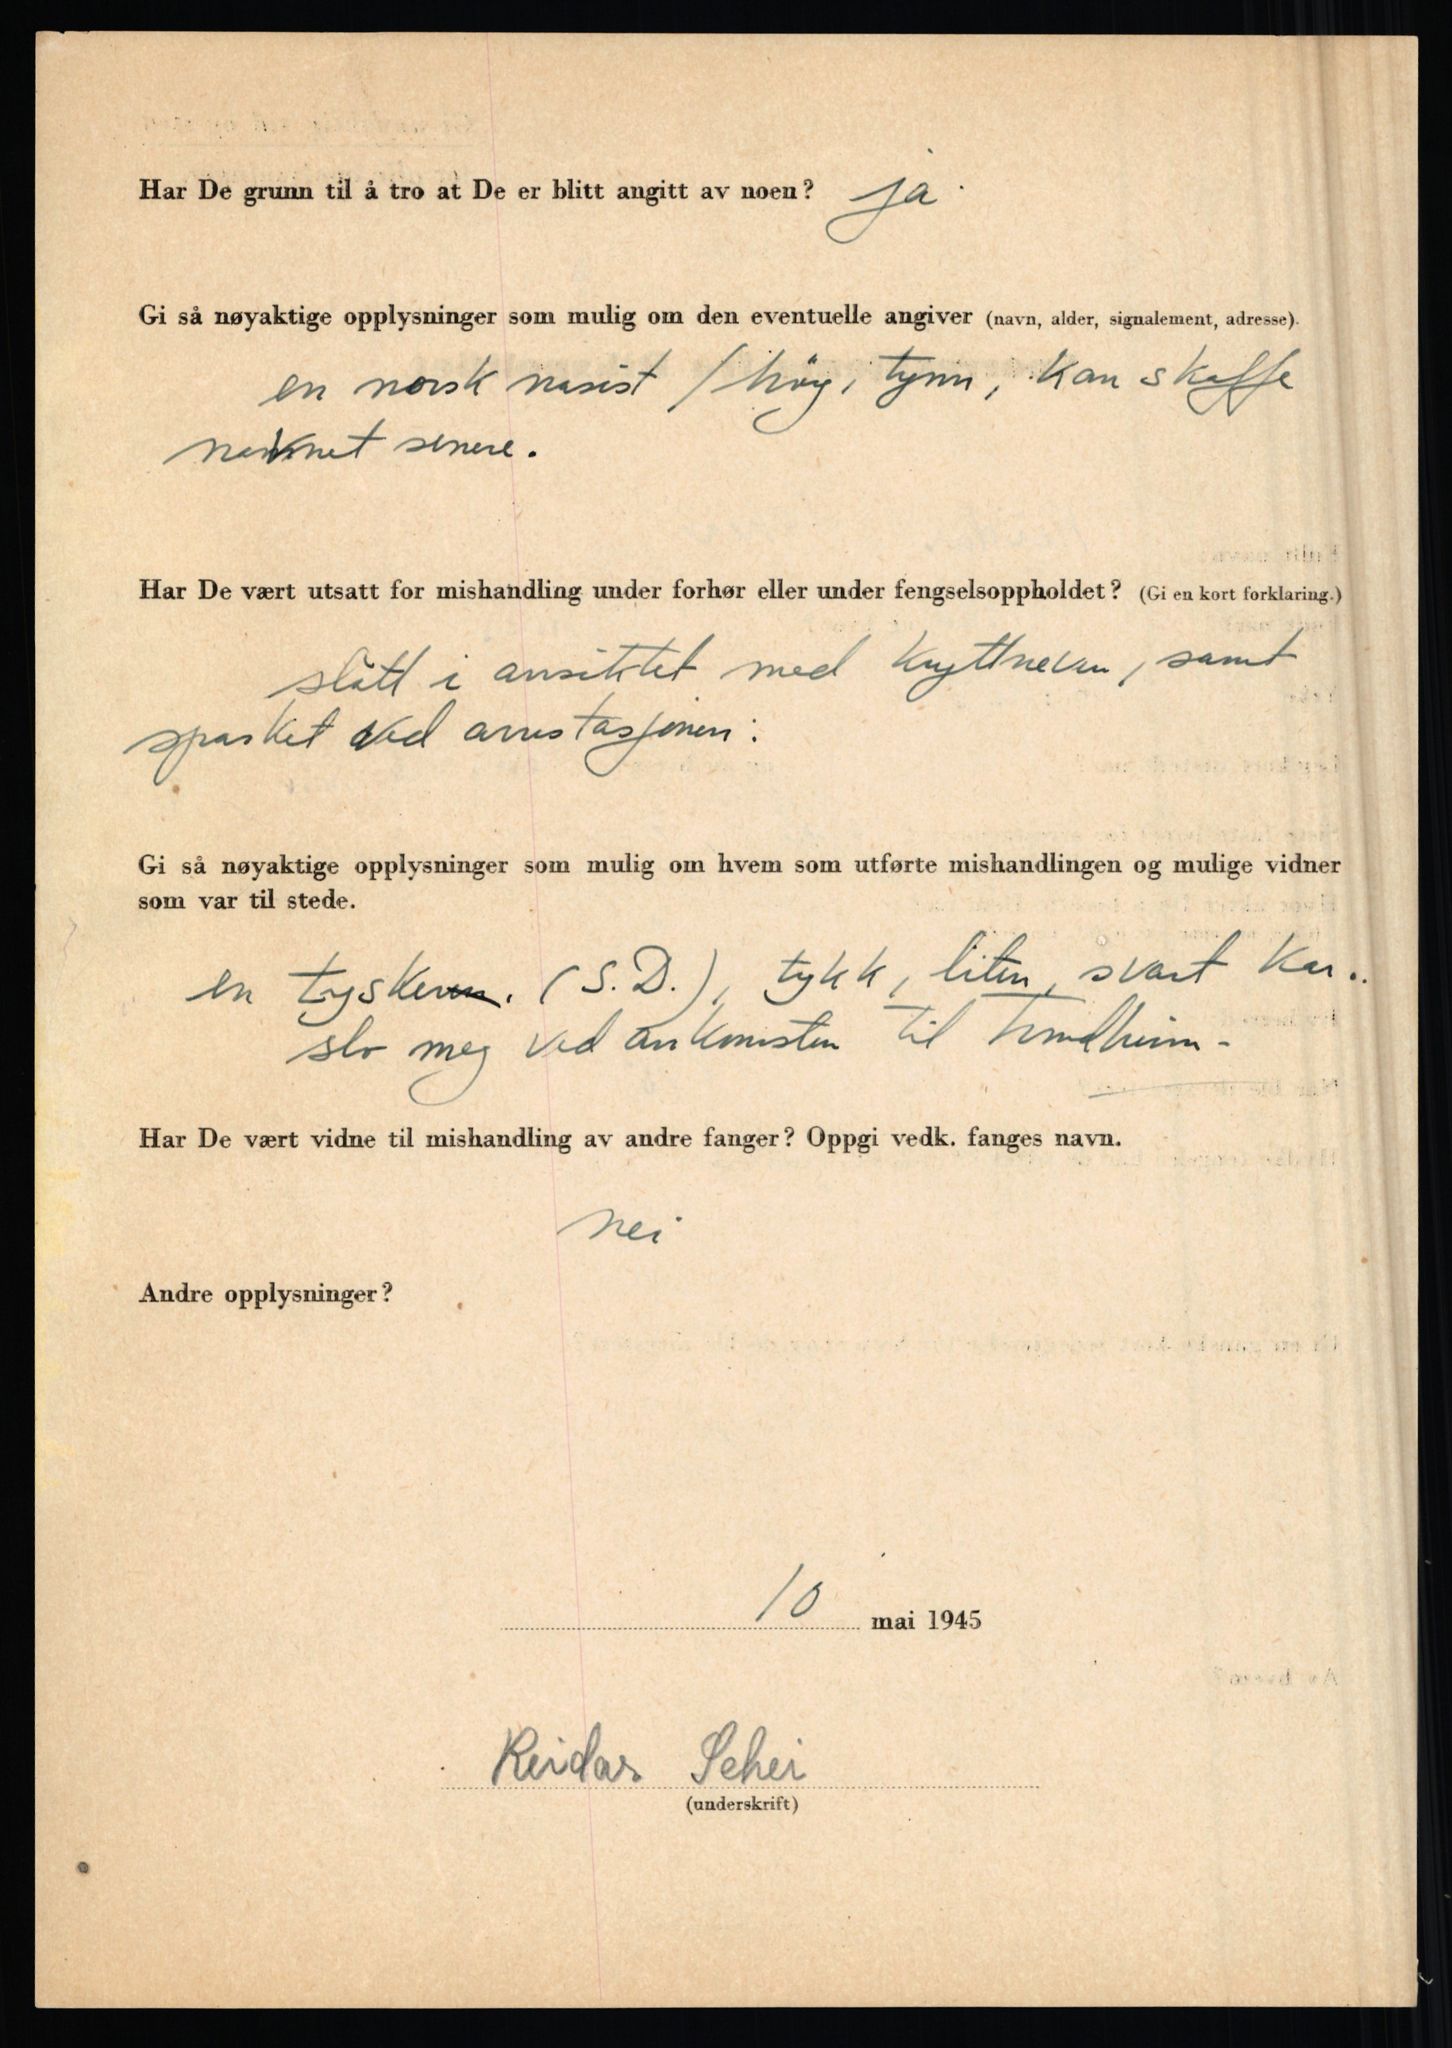 Har De grunn til å tro at De er blitt angitt av noen? ja.
Gi så nøyaktige opplysninger som mulig om den eventuelle angiver (navn, alder, signalement, adresse).
en norsk nasist / høy, tynn, kan skaffe
navnet senere.
Har De vært utsatt for mishandling under forhør eller under fengselsoppholdet? (Gi en kort forklaring.)
slått i ansiktet med knyttneven, samt
sparket ved arrestasjonen.
Gi så nøyaktige opplysninger som mulig om hvem som utførte mishandlingen og mulige vidner
som var til stede.
en tysker. (S.D.), tykk, liten, svart kar..
slo meg ved ankomsten til Trondheim-
Har De vært vidne til mishandling av andre fanger? Oppgi vedk. fanges navn.
nei
Andre opplysninger?
10 mai 1945
Reidar Schei
(underskrift)